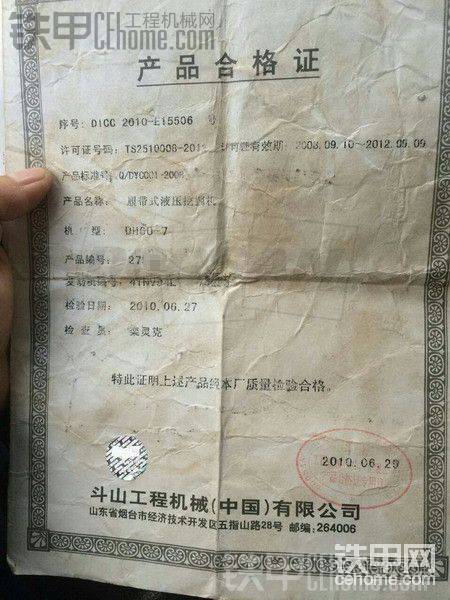 铁甲 工程机械网
CEhome.com
产品合格证
序号: DICC 2010-E15506 号
许可证号码: TS2510006-2012 许可证有效期: 2008.09.10~2012.09.09
产品标准号: Q/DYC001-2008
产品名称: 履带式液压挖掘机
机 型: DH60-7
产品编号: 27
发动机编号:
检验日期: 2010.06.27
检 查 员: 栾灵克
特此证明上述产品经本厂质量检验合格。
2010.06.29
斗山工程机械(中国)有限公司
山东省烟台市经济技术开发区五指山路28号 邮编: 264006
铁甲网
www.cehome.com